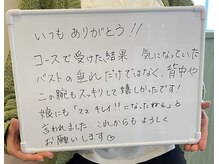 いつもありがとう!!
コースで受けた結果、気になっていた
バストの垂れだけではなく、背中や
二の腕もスッキリして嬉しかったです!
娘にも「ママ キレイ!!になったねぇ」と
言われました。これからもよろしく
お願いします♡